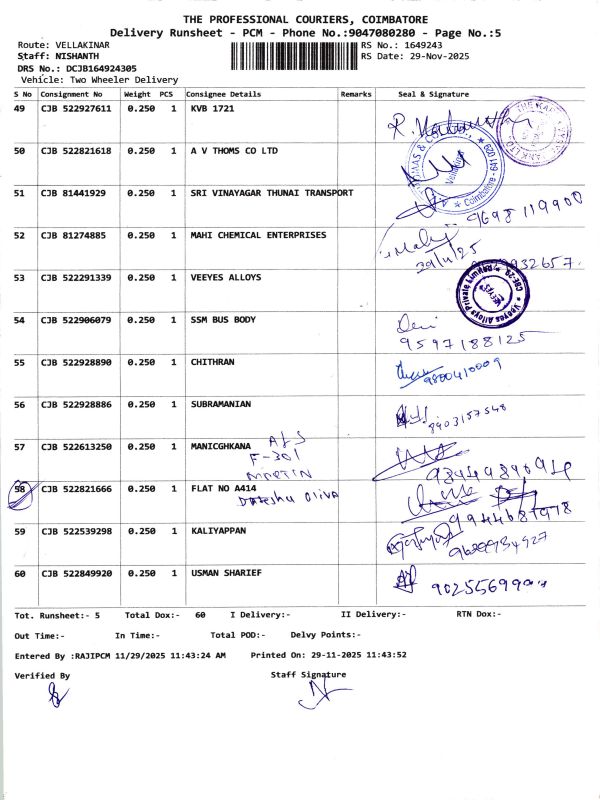 THE PROFESSIONAL COURIERS, COIMBATORE
Delivery Runsheet - PCM - Phone No.:9047080280 - Page No.:5
Route: VELLAKINAR RS No.: 1649243
Staff: NISHANTH RS Date: 29-Nov-2025
DRS No.: DCJB164924305
Vehicle: Two Wheeler Delivery
S No Consignment No Weight PCS Consignee Details Remarks Seal & Signature
49 CJB 522927611 0.250 1 KVB 1721
50 CJB 522821618 0.250 1 A V THOMS CO LTD
51 CJB 81441929 0.250 1 SRI VINAYAGAR THUNAI TRANSPORT
9698119900
52 CJB 81274885 0.250 1 MAHI CHEMICAL ENTERPRISES
29/11/25
53 CJB 522291339 0.250 1 VEEYES ALLOYS
Veeyes Alloys Private Limited
VEEYES
54 CJB 522906079 0.250 1 SSM BUS BODY
9597188125
55 CJB 522928890 0.250 1 CHITHRAN
9800410009
56 CJB 522928886 0.250 1 SUBRAMANIAN
8903157548
57 CJB 522613250 0.250 1 MANICGHKANA
F-301
MARTIN
58 CJB 522821666 0.250 1 FLAT NO A414
Oliva
59 CJB 522539298 0.250 1 KALIYAPPAN
60 CJB 522849920 0.250 1 USMAN SHARIEF
Tot. Runsheet:- 5 Total Dox:- 60 I Delivery:- II Delivery:- RTN Dox:-
Out Time:- In Time:- Total POD:- Delvy Points:-
Entered By :RAJIPCM 11/29/2025 11:43:24 AM Printed On: 29-11-2025 11:43:52
Verified By Staff Signature